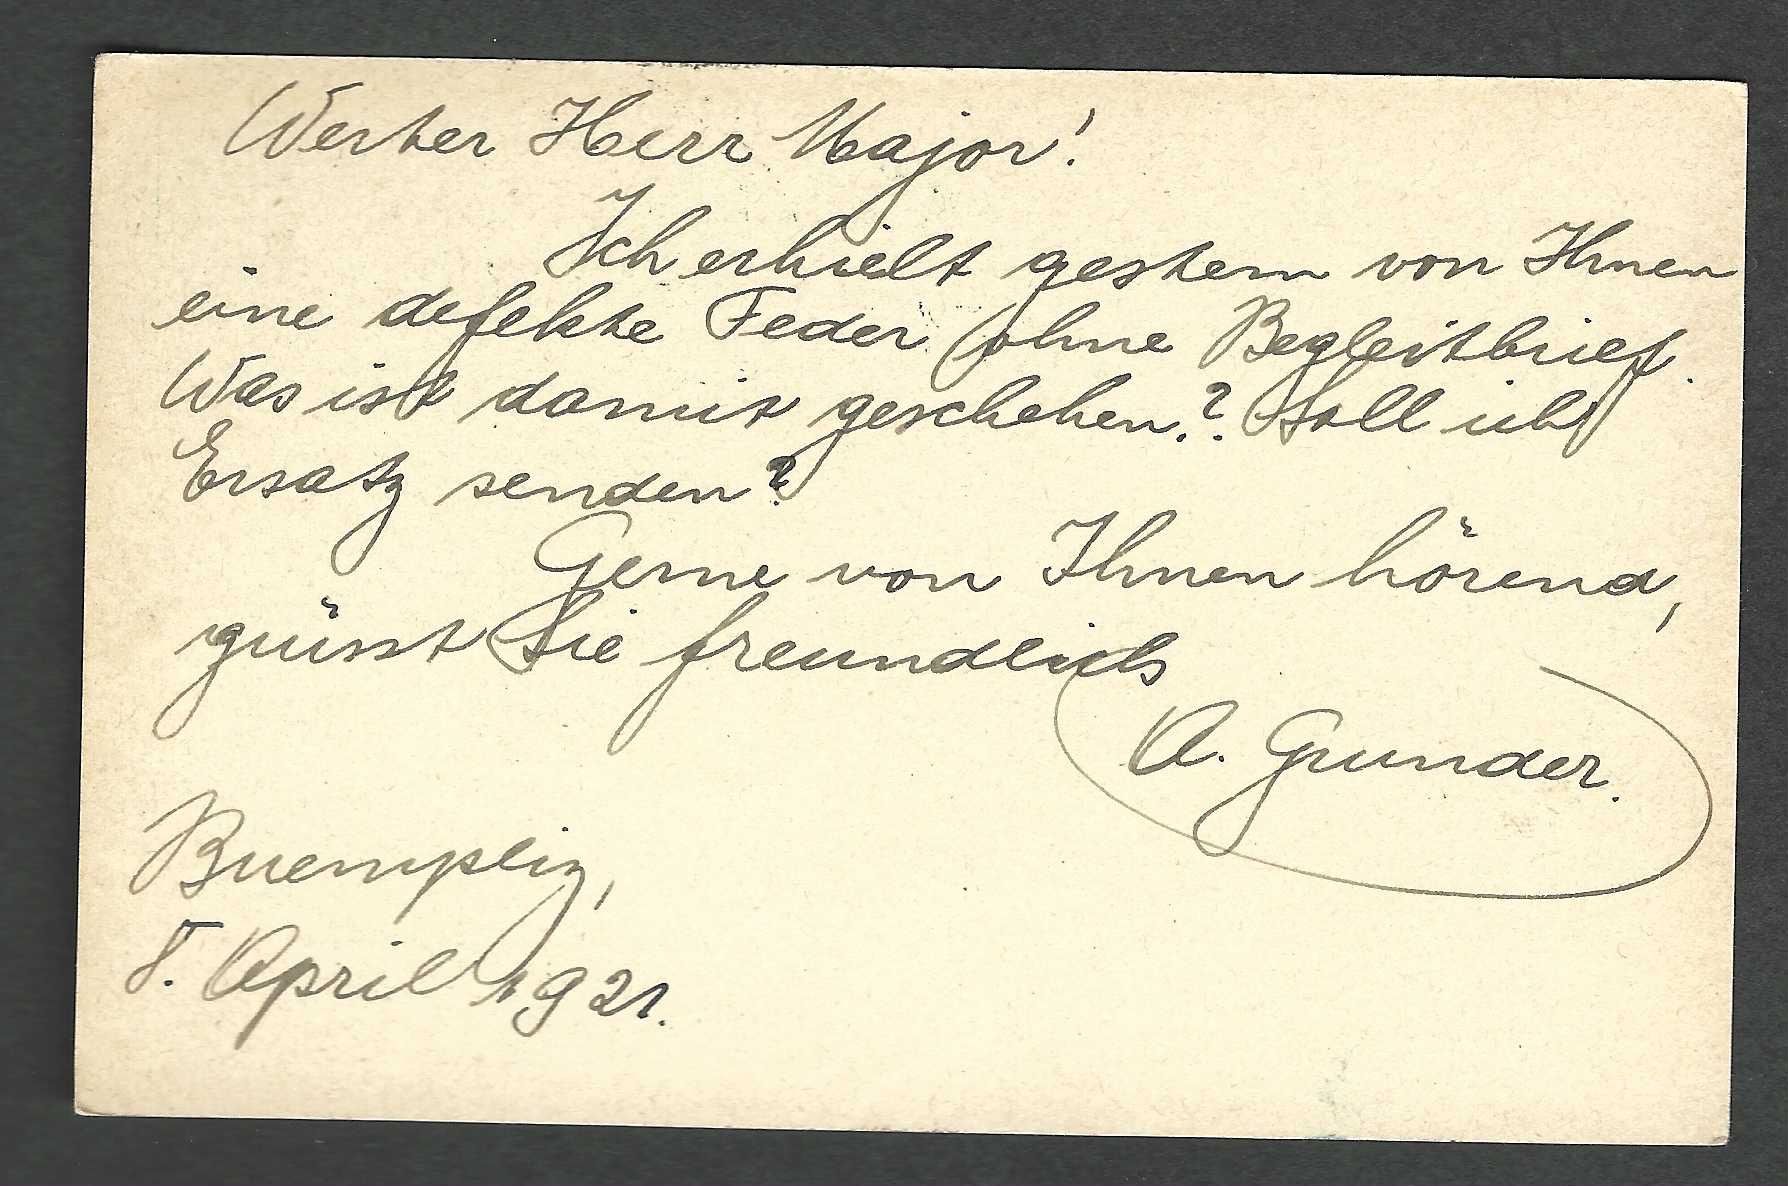 Werter Herr Major!
Ich erhielt gestern von Ihnen
eine defekte Feder ohne Begleitbrief.
Was ist damit geschehen? Soll ich
Ersatz senden?
Gerne von Ihnen hörend,
grüsst Sie freundlich
A. Gunder.
Buempliz,
8. April 1921.